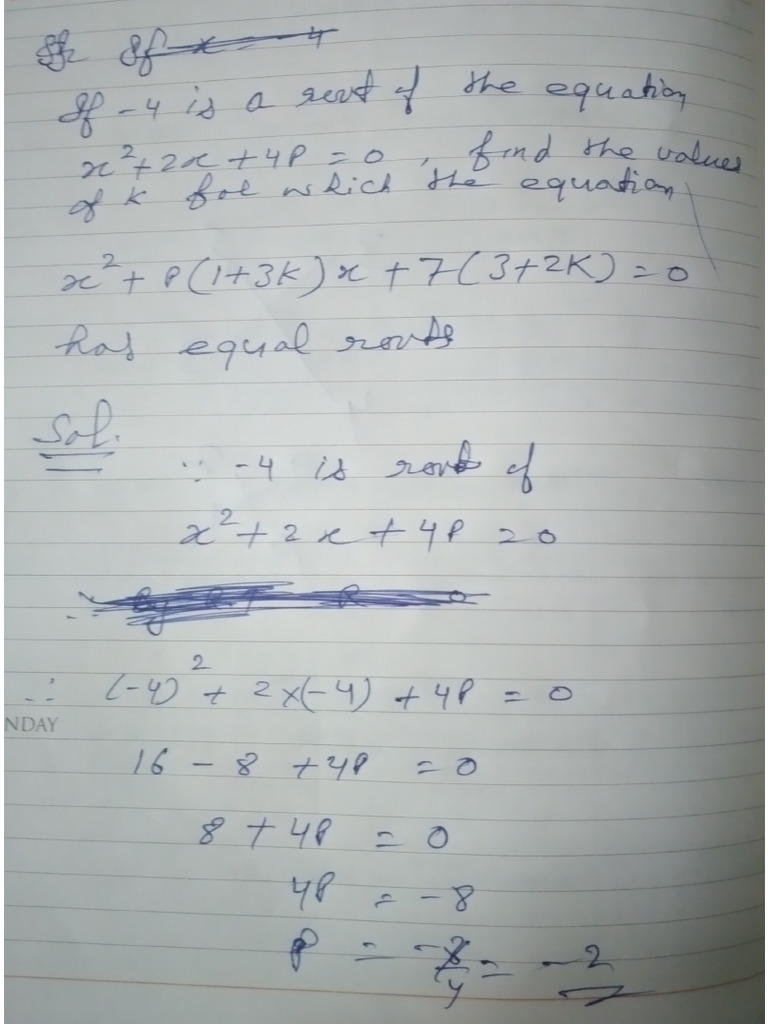 If x = -4
If -4 is a root of the equation
x²+2x+4P = 0, find the values
of K for which the equation
x² + P(1+3K)x + 7(3+2K) = 0
has equal roots
Sol.
∵ -4 is root of
x² + 2x + 4P = 0
∴ (-4)² + 2×(-4) + 4P = 0
NDAY
16 - 8 + 4P = 0
8 + 4P = 0
4P = -8
P = -8/4 = -2